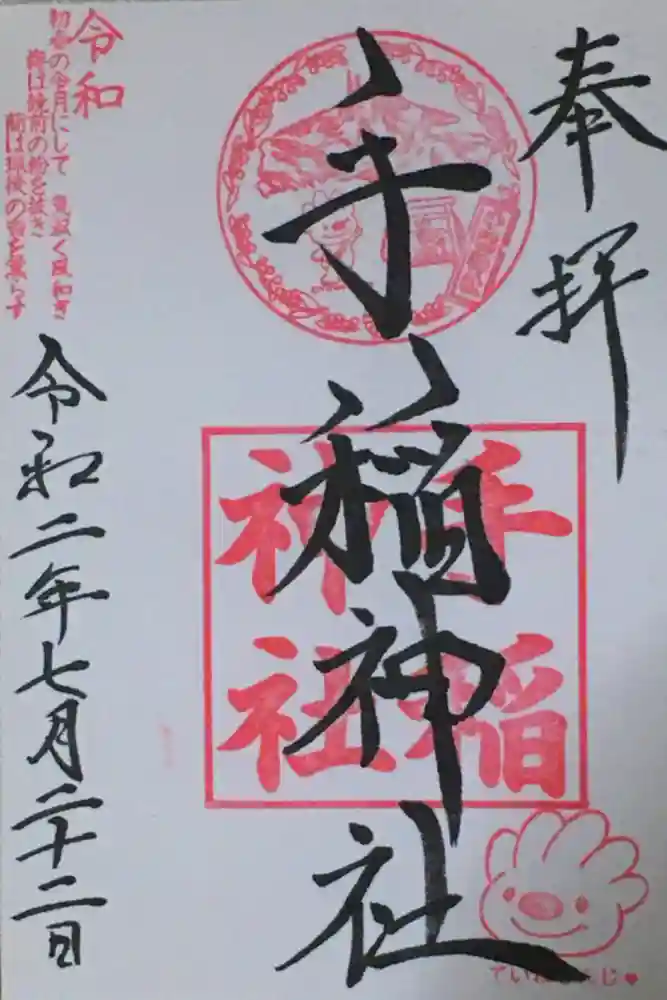 奉拝
手稲神社
手稲
神社
令和二年七月二十二日
令和
初春の令月にして 気淑く風和ぎ
梅は鏡前の粉を披き
蘭は珮後の香を薫らす